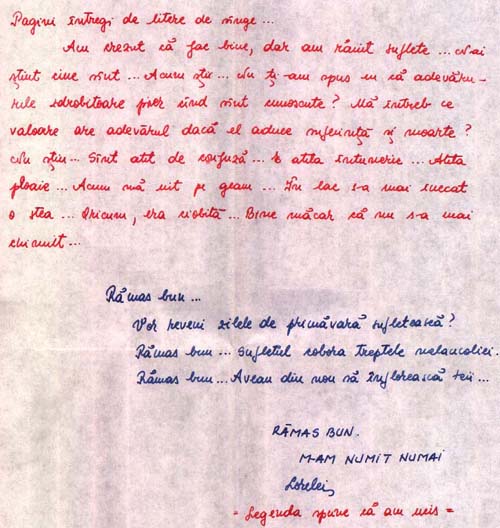 Pagini întregi de litere de sînge...
Am crezut că fac bine, dar am rănit suflete... N-ai
știut cine sînt... Acum știi... Nu ți-am spus eu că adevăru-
rile zdrobitoare pier cînd sînt cunoscute? Mă întreb ce
valoare are adevărul dacă el aduce suferință și moarte?
Nu știu... Sînt atît de confuză... E atîta întuneric... Atîta
ploaie... Acum mă uit pe geam... În lac s-a mai înecat
o stea... Oricum, era ciobită... Bine măcar că nu s-a mai
chinuit...
Rămas bun...
Vor reveni zilele de primăvară sufletească?
Rămas bun... Sufletul cobora treptele melancoliei.
Rămas bun... Aveau din nou să înflorească teii...
RĂMAS BUN.
M-AM NUMIT NUMAI
Lorelei
= Legenda spune că am ucis =